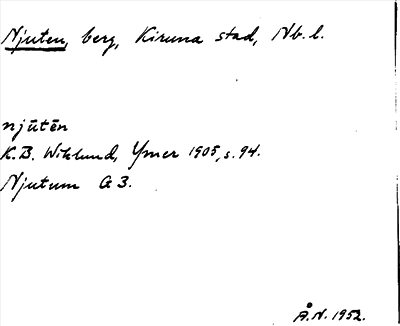 Njuten, berg, Kiruna stad, Nb. l.
njūtēn
K.B. Wiklund, Ymer 1905, s. 94.
Njutum G 3.
Å.N. 1952.